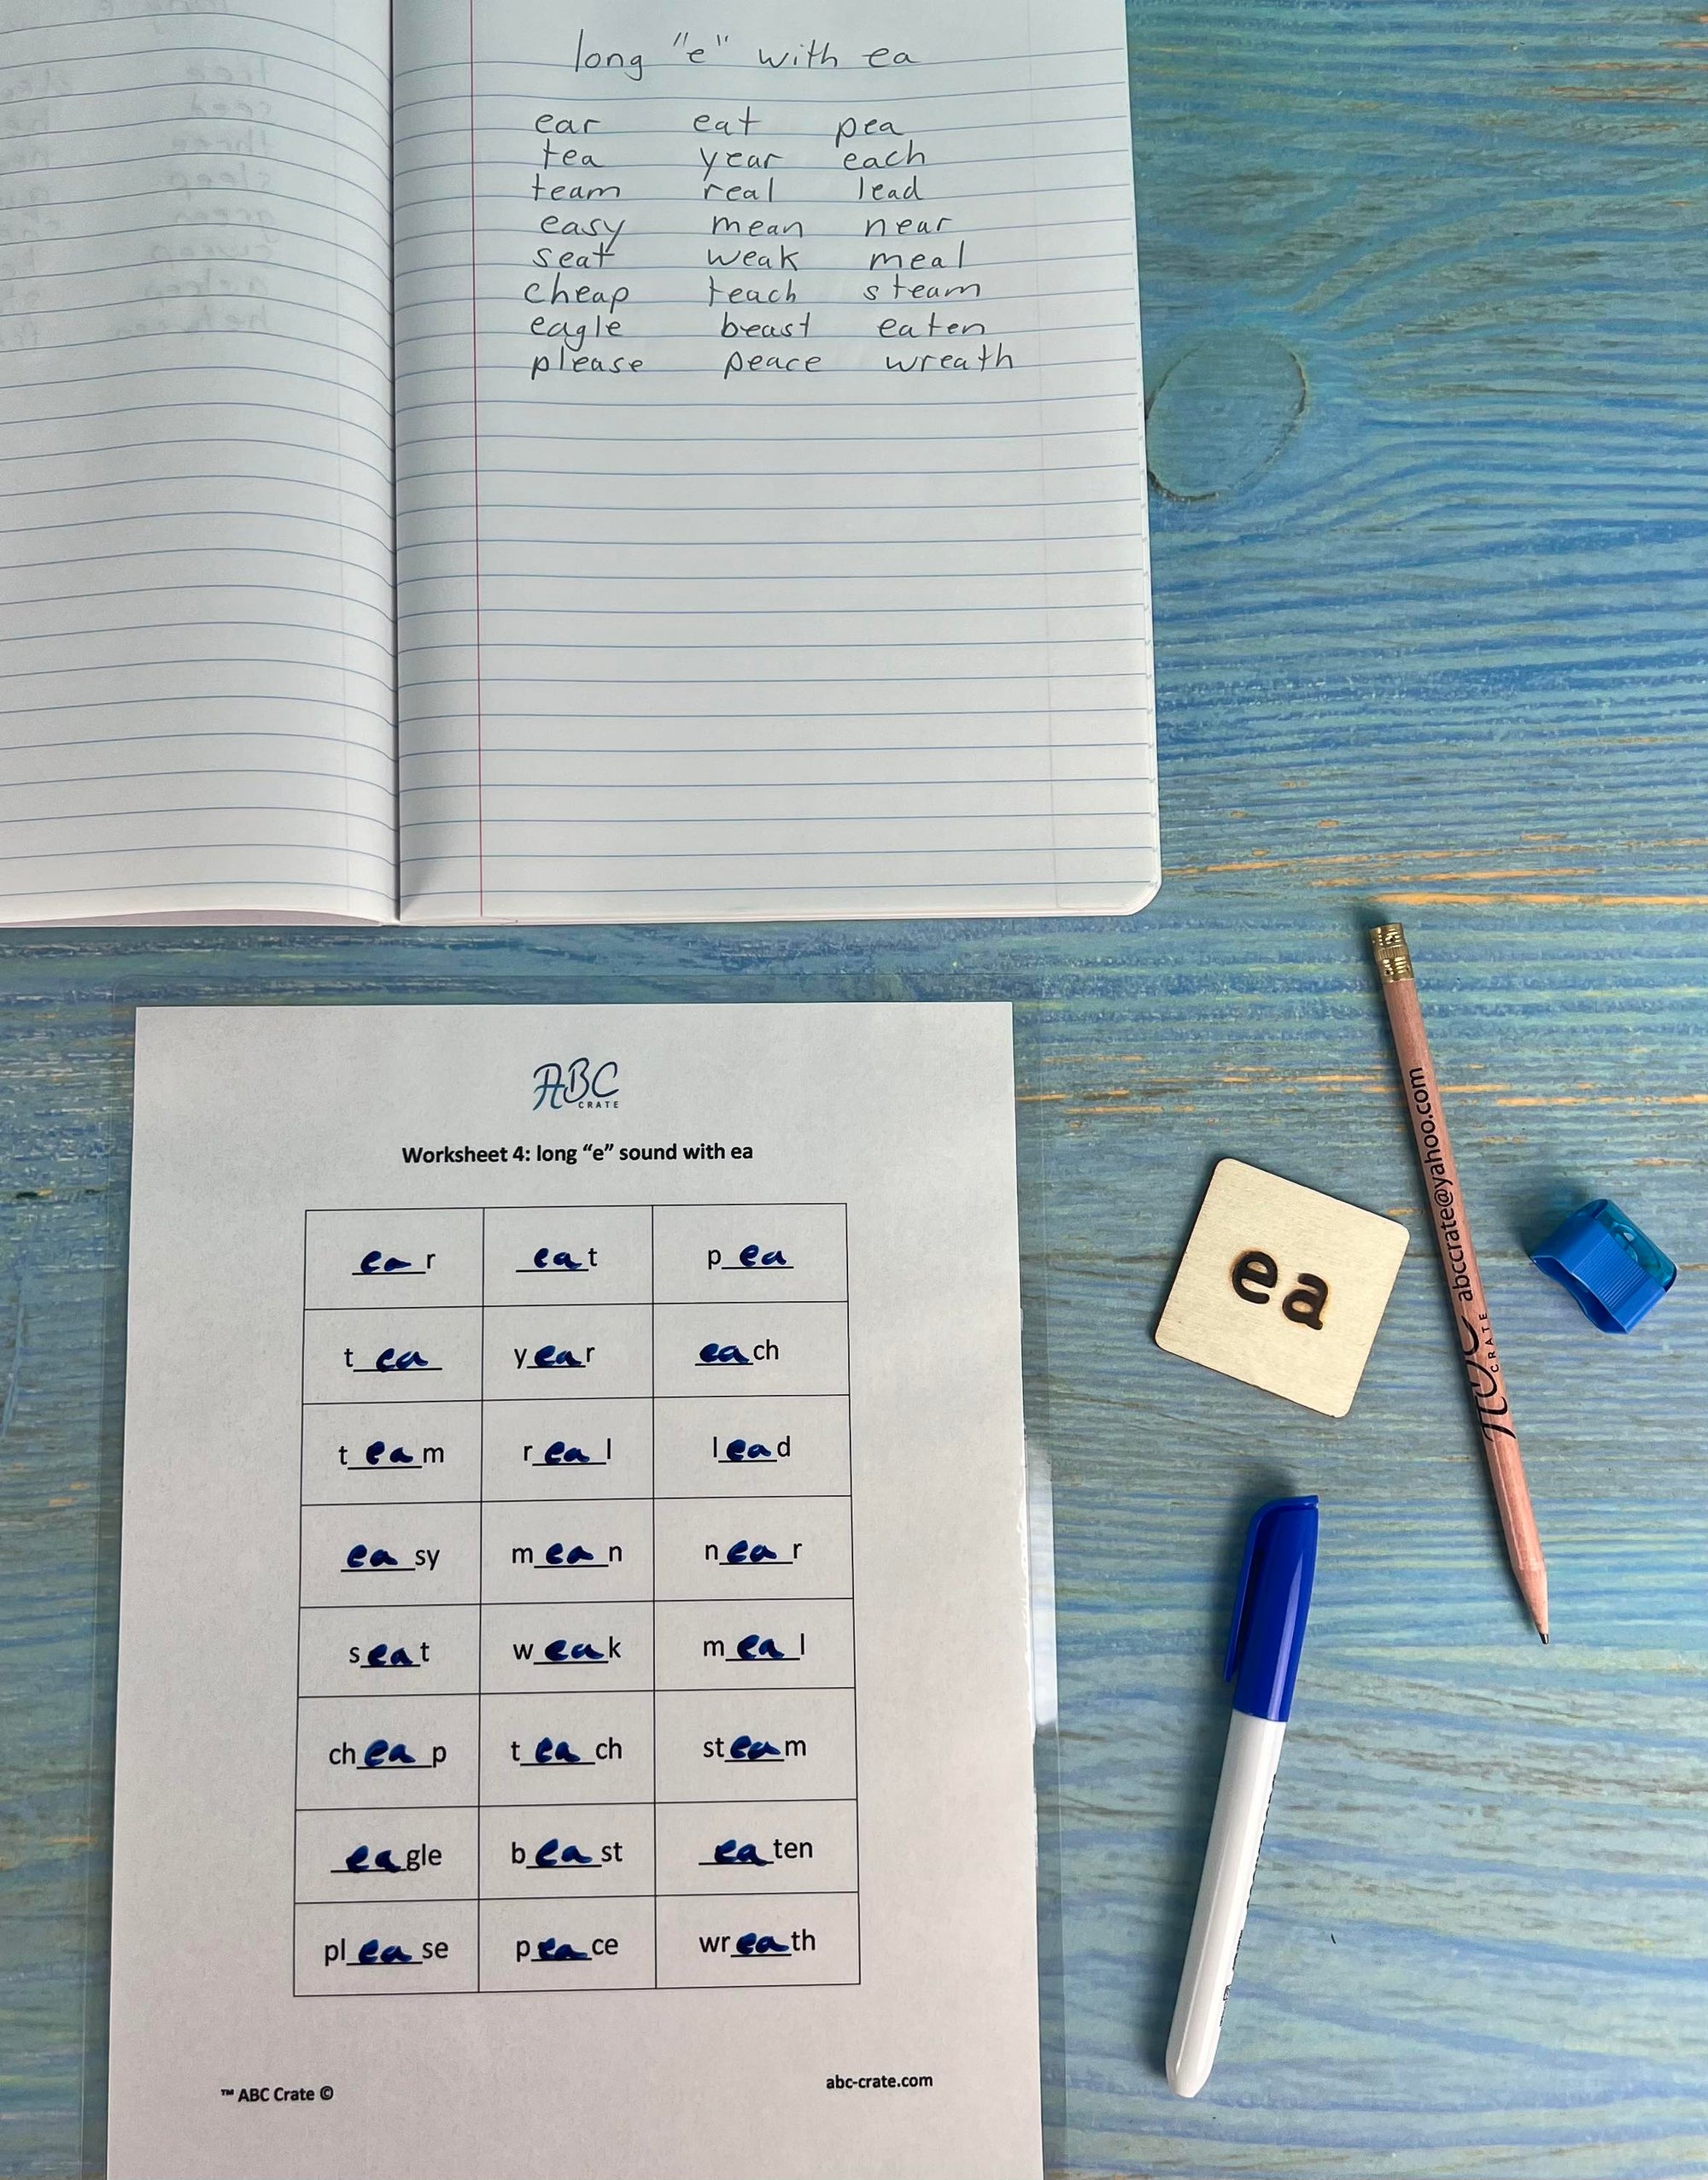 long "e" with ea
ear eat pea
tea year each
team real lead
easy mean near
seat weak meal
cheap teach steam
eagle beast eaten
please peace wreath
ABC
CRATE
Worksheet 4: long “e” sound with ea
ear eat pea
tea year each
team real lead
easy mean near
seat weak meal
cheap teach steam
eagle beast eaten
please peace wreath
™ ABC Crate © abc-crate.com
ea
ABC CRATE abccrate@yahoo.com